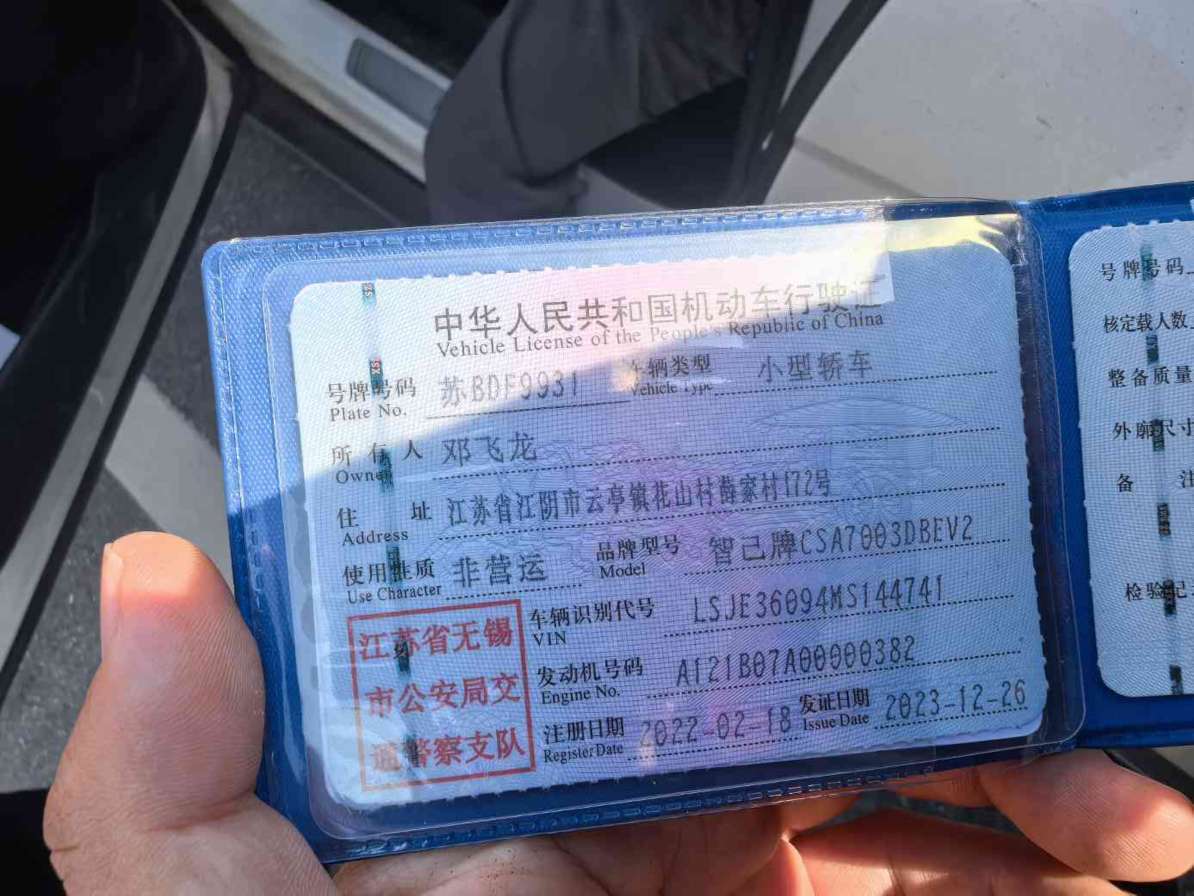 中华人民共和国机动车行驶证
Vehicle License of the People's Republic of China
号牌号码 苏BDF9931 车辆类型 小型轿车
Plate No. Vehicle Type
所有人 邓飞龙
Owner
住址 江苏省江阴市云亭镇花山村薛家村172号
Address
使用性质 非营运 品牌型号 智己牌CSA7003DBEV2
Use Character Model
江苏省无锡
市公安局交
通警察支队
车辆识别代号 LSJE36094MS144741
VIN
发动机号码 A121B07A00000382
Engine No.
注册日期 2022-02-18 发证日期 2023-12-26
Register Date Issue Date
号牌号码
核定载人数
整备质量
外廓尺寸
备 注
检验记